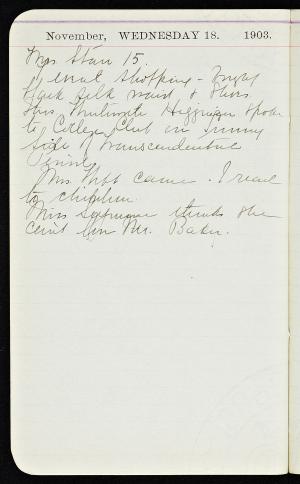 November, WEDNESDAY 18. 1903.
Mrs Starr 15.
I went shopping -
black silk waist & shoes
Mrs Higginson spoke
to College Club on funny
side of Transcendental
Period,
Mrs Webb came. I read
to children.
Miss Seymour thinks she
can't love Mr. Baker.